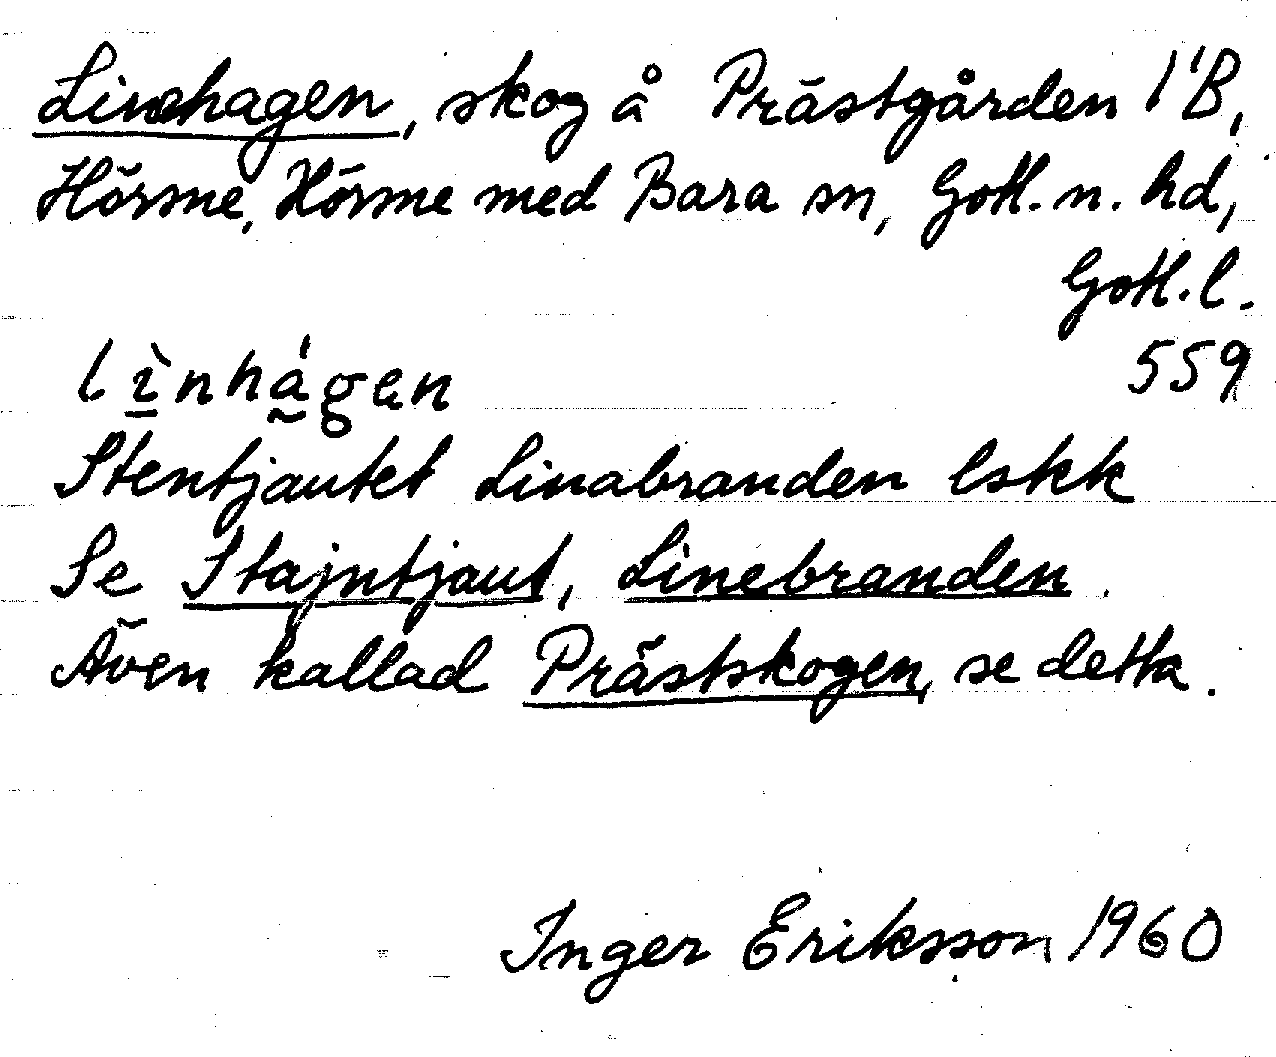 Linehagen, skog å Prästgården 1¹B,
Hörsne, Hörsne med Bara sn, Gotl. n. hd,
Gotl. l.
559
lìnhágen
Stentjautet Linabranden lskk
Se Stajntjaut, Linebranden.
Även kallad Prästskogen, se detta.
Inger Eriksson 1960